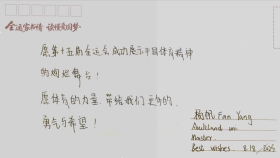 全运家书情 读懂爱国梦
愿第十五届全运会成功展示中国体育精神
的烟花舞台！
愿体育的力量，带给我们更多的
勇气与希望！
杨帆 Fan Yang
Auckland uni
Master
Best wishes 8.18, 2025